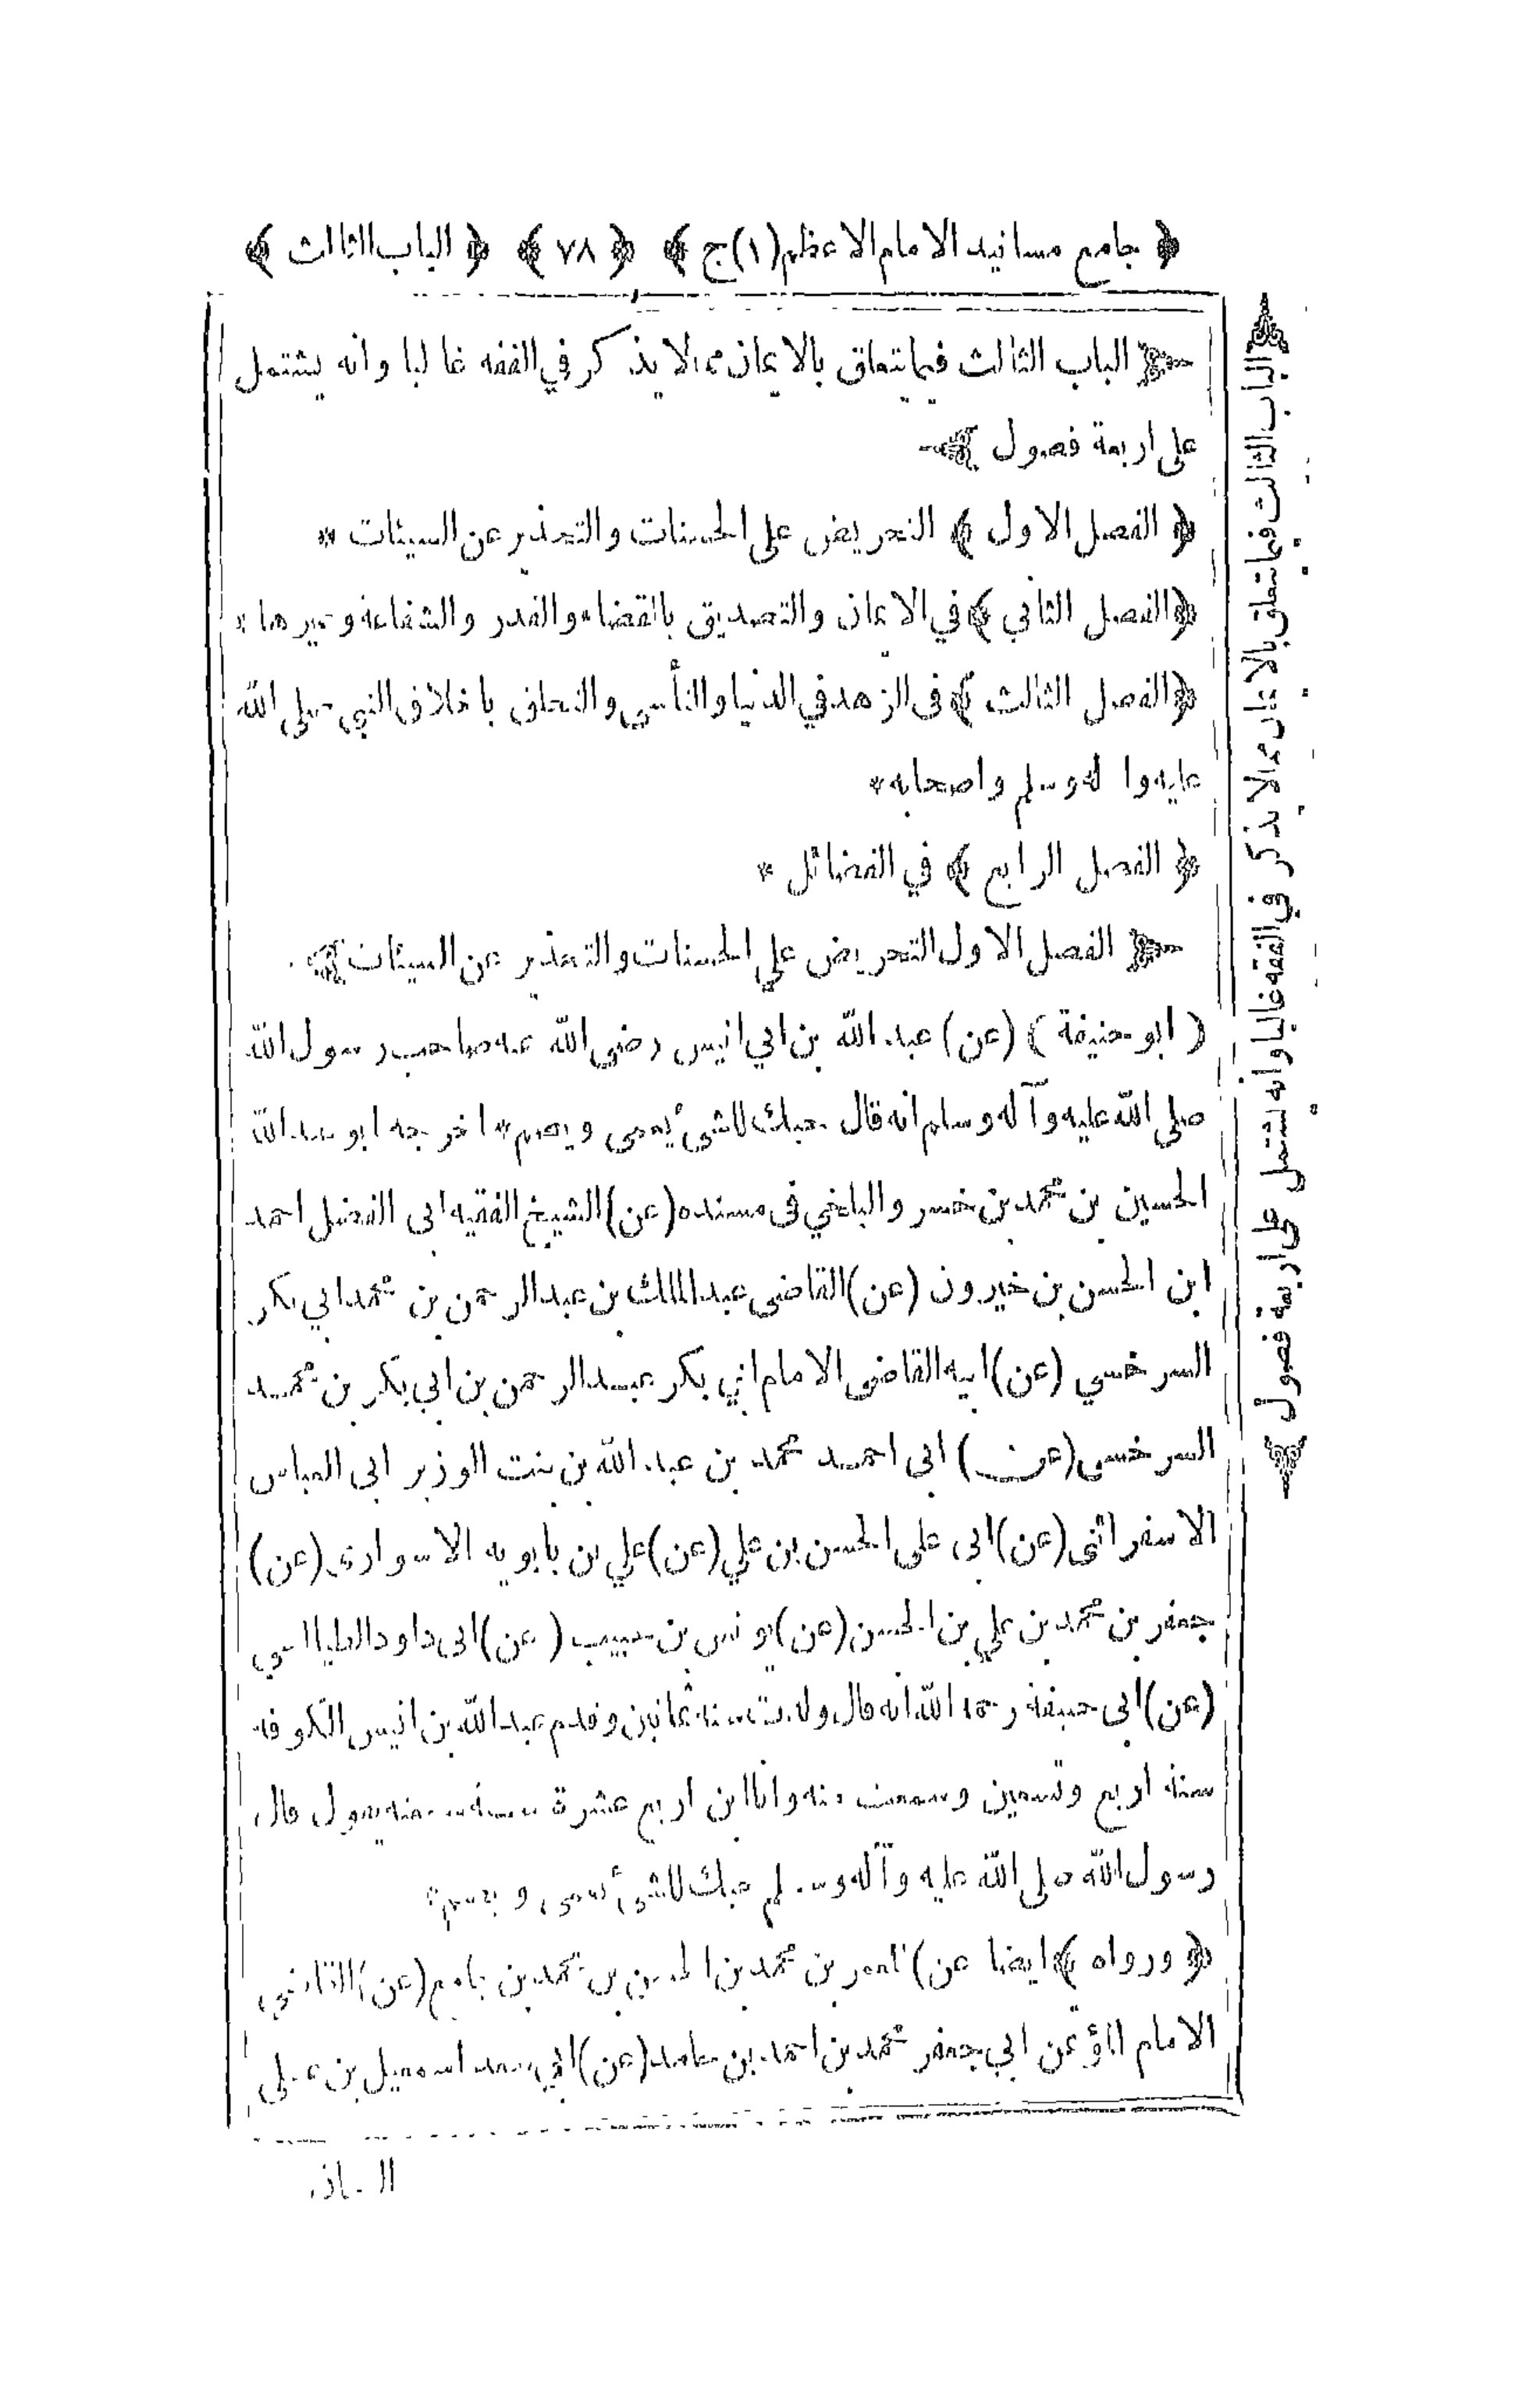 ﴿ جامع مسانيد الامام الاعظم(١)ج ﴾ ﴿ ٧٨ ﴾ ﴿ الباب الثالث ﴾
الباب الثالث فيما يتعلق بالايمان مما لا يذكر في الفقه غالبا وانه يشتمل
على اربعة فصول
﴿ الفصل الاول ﴾ التحريض على الحسنات والتحذير عن السيئات *
﴿ الفصل الثاني ﴾ في الايمان والتصديق بالقضاء والقدر والشفاعة وغيرها *
﴿ الفصل الثالث ﴾ فى الزهد في الدنيا والتأسي والتخلق باخلاق النبي صلى الله
عليه وا له وسلم واصحابه *
﴿ الفصل الرابع ﴾ في الفضائل *
الفصل الاول التحريض على الحسنات والتحذير عن السيئات
( ابو حنيفة ) (عن) عبد الله بن ابي انيس رضى الله عنه صاحب رسول الله
صلى الله عليه وآله وسلم انه قال حبك للشئ يعمى ويصم * اخرجه ابو عبد الله
الحسين بن محمد بن خسرو البلخي فى مسنده (عن) الشيخ الفقيه ابى الفضل احمد
ابن الحسن بن خيرون (عن) القاضى عبد الملك بن عبد الرحمن بن محمد ابي بكر
السرخسي (عن) ابيه القاضى الامام ابي بكر عبد الرحمن بن ابي بكر بن محمد
السرخسى (عن) ابى احمد محمد بن عبد الله بن بنت الوزير ابى العباس
الاسفرائنى (عن) ابى على الحسن بن علي (عن) علي بن بابويه الاسوارى (عن)
جعفر بن محمد بن علي بن الحسن (عن) يونس بن حبيب (عن) ابى داود الطيالسي
(عن) ابى حنيفة رحمه الله انه قال ولدت سنة ثمانين وقدم عبد الله بن انيس الكوفة
سنة اربع وتسعين وسمعت منه وانا ابن اربع عشرة سنة سمعته يقول قال
رسول الله صلى الله عليه وآله وسلم حبك للشئ يعمى ويصم *
﴿ ورواه ﴾ ايضا عن) محمد بن الحسين بن محمد بن (عن) القاضي
الامام المؤتمن ابي جعفر محمد بن احمد بن حامد (عن) ابي سعد اسمعيل بن علي
الباب الثالث فيما يتعلق بالايمان مما لا يذكر في الفقه غالبا وانه يشتمل على اربعة فصول